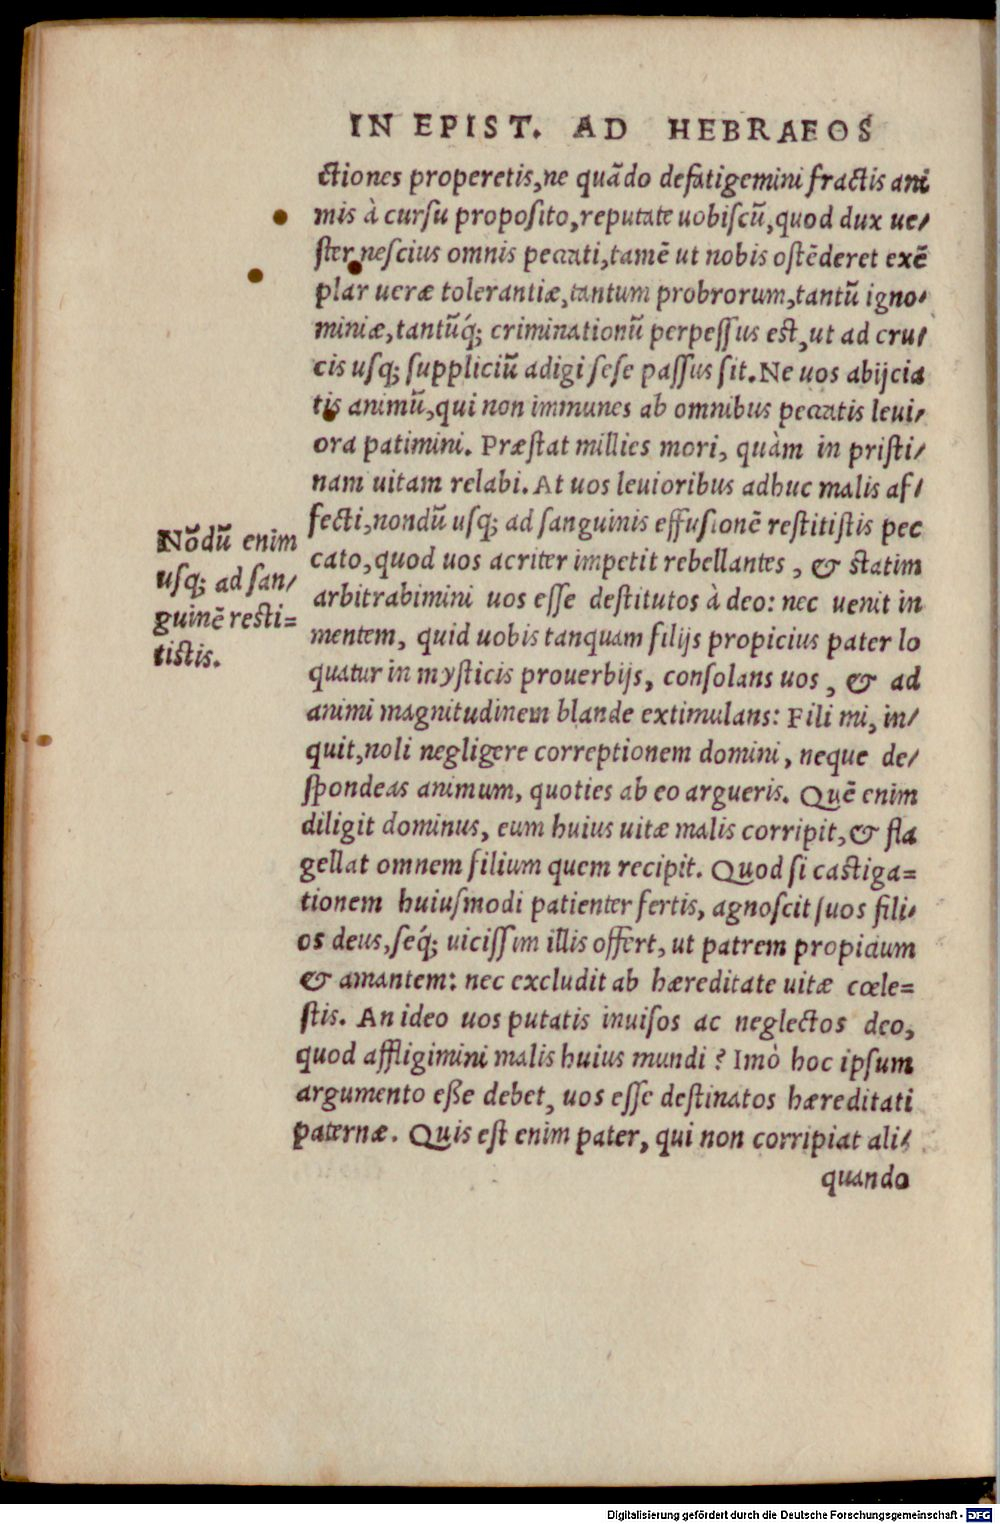 IN EPIST. AD HEBRAEOS
ctiones properetis, ne quādo defatigemini fractis ani
mis à cursu proposito, reputate uobiscū, quod dux ue/
ster nescius omnis peccati, tamē ut nobis ostēderet exē
plar ueræ tolerantiæ, tantum probrorum, tantū igno/
miniæ, tantūq́; criminationū perpessus est, ut ad cru/
cis usq; suppliciū adigi sese passus sit. Ne uos abijcia
tis animū, qui non immunes ab omnibus peccatis leui/
ora patimini. Præstat millies mori, quàm in pristi/
nam uitam relabi. At uos leuioribus adhuc malis af/
fecti, nondū usq; ad sanguinis effusionē restitistis pec
cato, quod uos acriter impetit rebellantes, & statim
arbitrabimini uos esse destitutos à deo: nec uenit in
mentem, quid uobis tanquam filijs propicius pater lo
quatur in mysticis prouerbijs, consolans uos, & ad
animi magnitudinem blande extimulans: Fili mi, in/
quit, noli negligere correptionem domini, neque de/
spondeas animum, quoties ab eo argueris. Quē enim
diligit dominus, eum huius uitæ malis corripit, & fla
gellat omnem filium quem recipit. Quod si castiga=
tionem huiusmodi patienter fertis, agnoscit suos fili/
os deus, seq́; uicissim illis offert, ut patrem propicium
& amantem: nec excludit ab hæreditate uitæ cœle=
stis. An ideo uos putatis inuisos ac neglectos deo,
quod affligimini malis huius mundi? Imò hoc ipsum
argumento eße debet, uos esse destinatos hæreditati
paternæ. Quis est enim pater, qui non corripiat ali/
quando
Nōdū enim
usq; ad san/
guinē resti=
tistis.
Digitalisierung gefördert durch die Deutsche Forschungsgemeinschaft - DFG